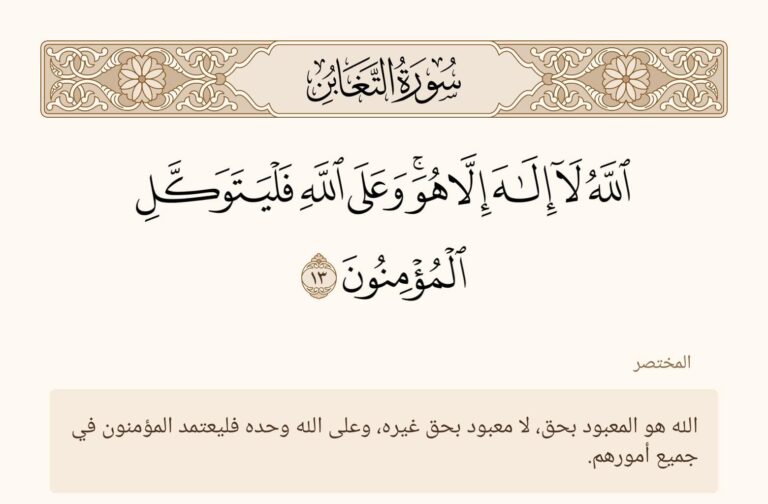 سُورَةُ التَّغَابُنِ
ٱللَّهُ لَآ إِلَـٰهَ إِلَّا هُوَۚ وَعَلَى ٱللَّهِ فَلۡيَتَوَكَّلِ
ٱلۡمُؤۡمِنُونَ ١٣
المختصر
الله هو المعبود بحق، لا معبود بحق غيره، وعلى الله وحده فليعتمد المؤمنون في
جميع أمورهم.